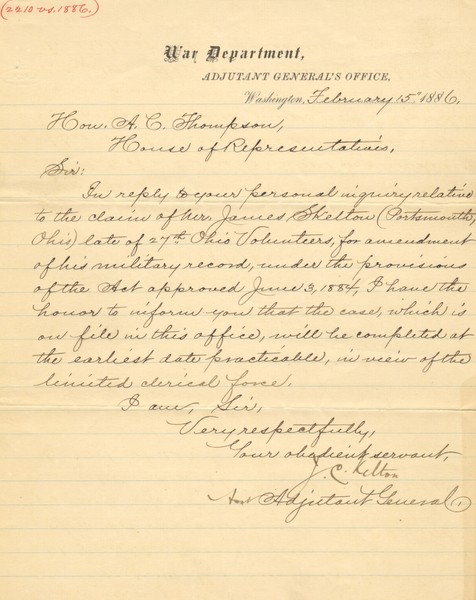 (2210 vs. 1886.)
War Department,
ADJUTANT GENERAL'S OFFICE,
Washington, February 15th 1886.
Hon. A. C. Thompson,
House of Representatives,
Sir:
In reply to your personal inquiry relative
to the claim of Mr. James Skelton (Portsmouth,
Ohio) late of 27th Ohio Volunteers, for amendment
of his military record, under the provisions
of the Act approved June 3, 1884, I have the
honor to inform you that the case, which is
on file in this office, will be completed at
the earliest date practicable, in view of the
limited clerical force.
I am, Sir,
Very respectfully,
Your obedient servant,
J. C. Kelton
Asst Adjutant General.